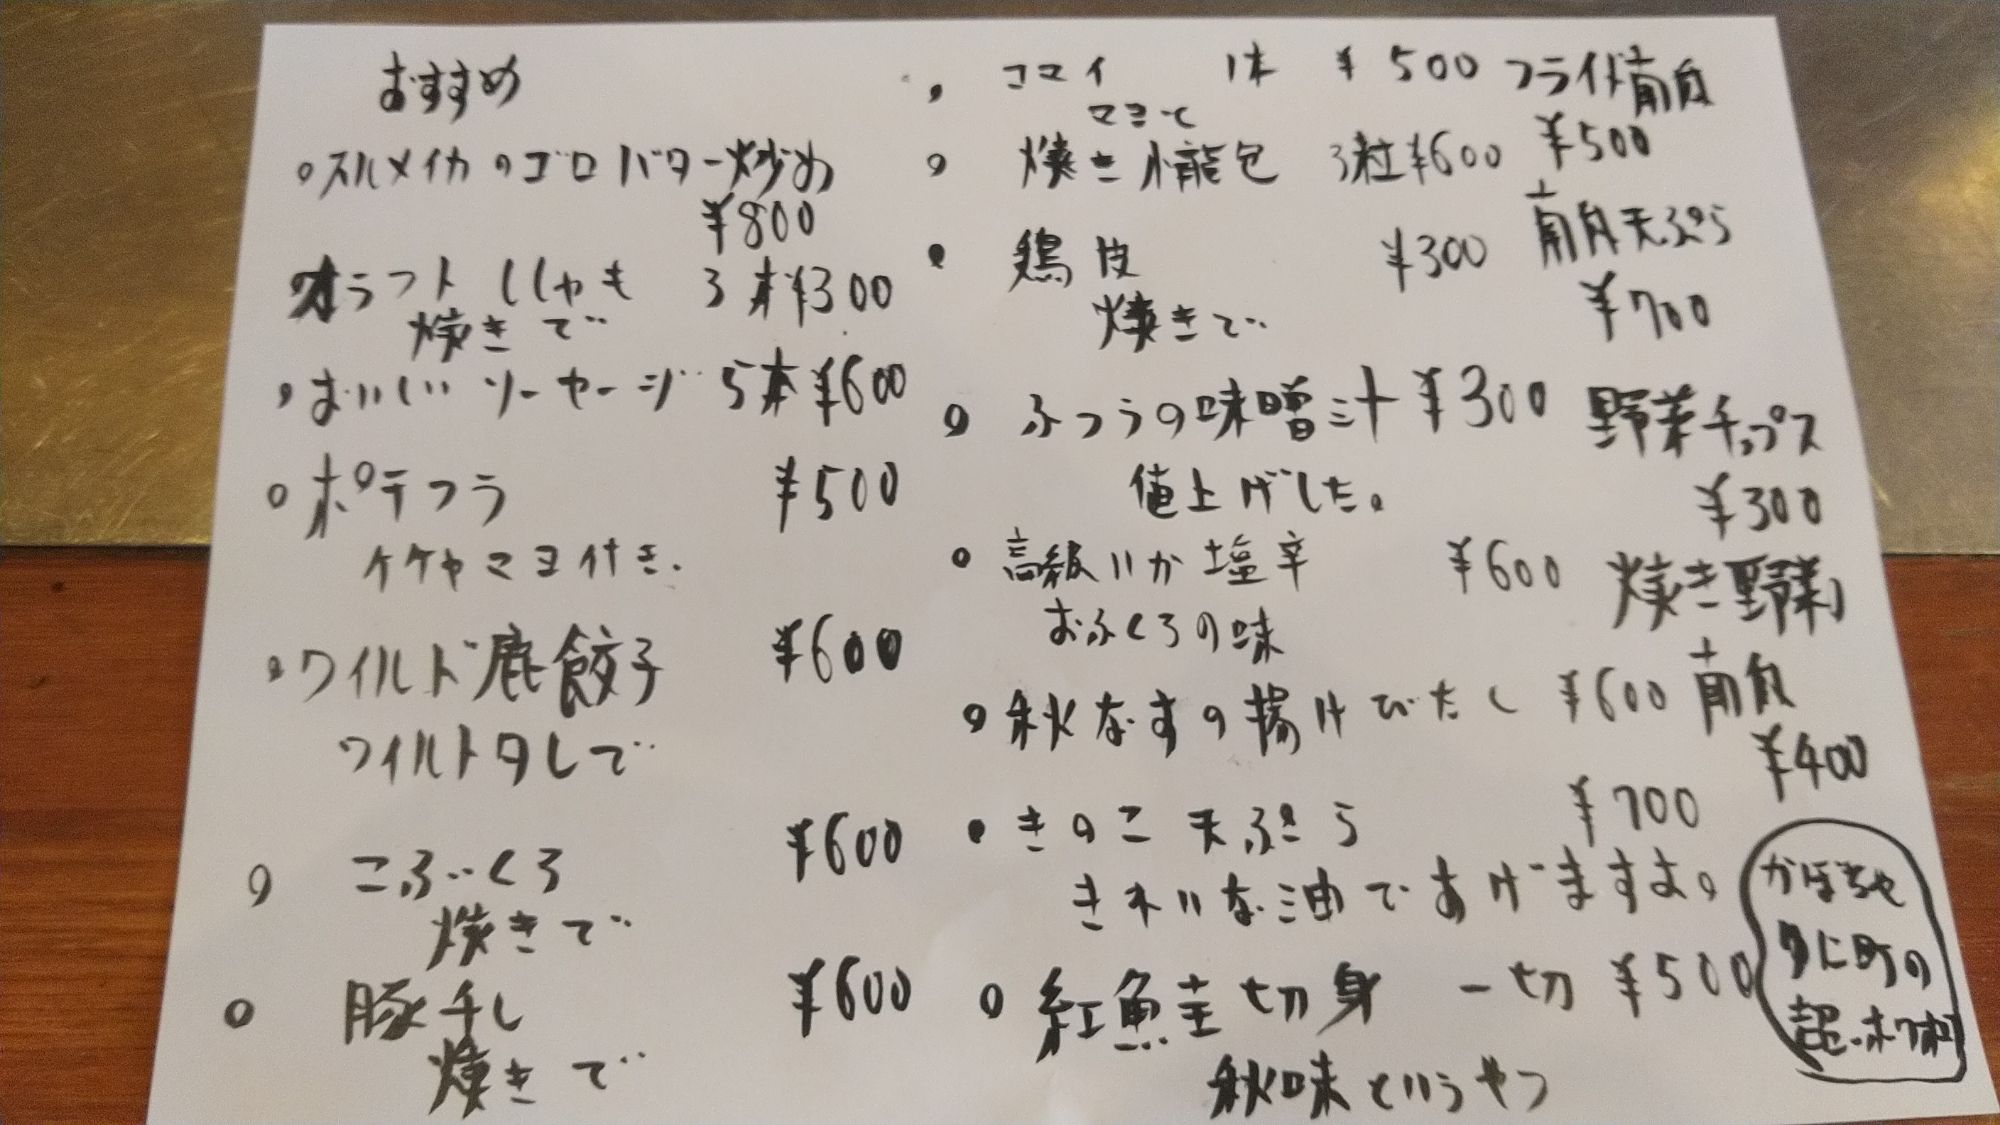 おすすめ
スルメイカのゴロバター炒め
¥800
オラフト ししゃも 3本¥300
焼きで
おいしい ソーセージ 5本¥600
ポテフラ ¥500
ケケヤマヨ付き.
ワイルド鹿餃子 ¥600
ワイルドタレで
こぶくろ ¥600
焼きで
豚千し ¥600
焼きで
コマイ 1本 ¥500
マヨで
焼き小龍包 3粒¥600
鶏皮 ¥300
焼きで
ふつうの味噌汁¥300
値上げした。
高級いか塩辛 ¥600
おふくろの味
秋なすの揚げびたし ¥600
きのこ天ぷら ¥700
きれいな油であげますよ。
紅鮭切身 一切¥500
秋味というやつ
フライド南瓜
¥500
南瓜天ぷら
¥700
野菜チップス
¥300
焼き野菜
南瓜
¥400
かぼちゃ
くに町の
超ホク